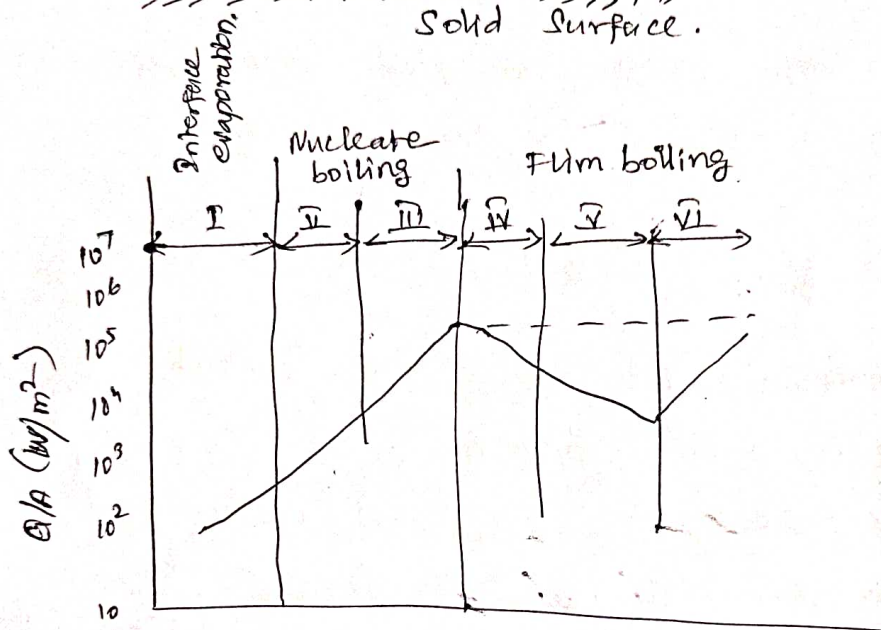 Solid Surface.
Interface
evaporation,
Nucleate
boiling
Flim boiling
I II III IV V VI
10⁷
10⁶
10⁵
10⁴
10³
10²
10